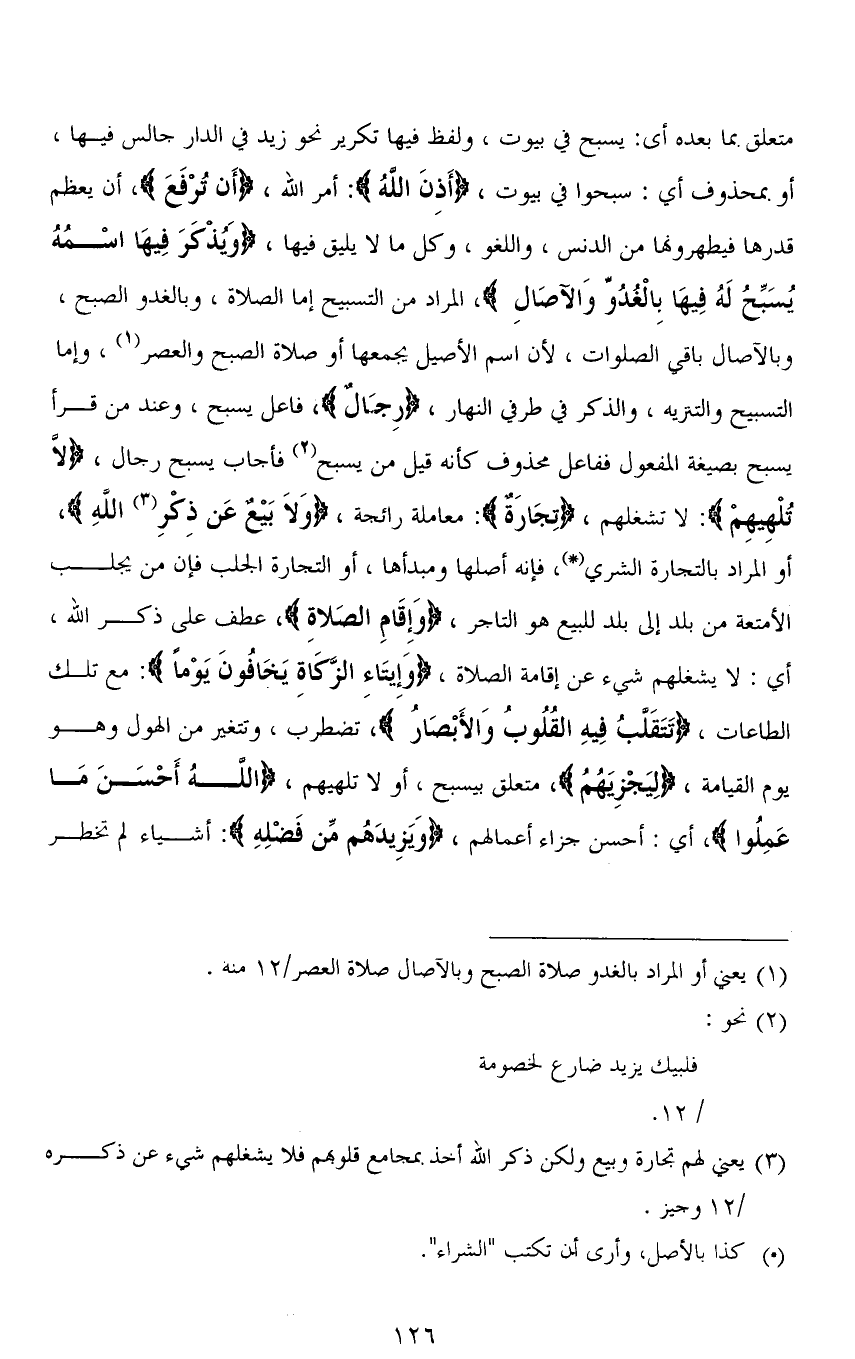 متعلق بما بعده أى: يسبح في بيوت ، ولفظ فيها تكرير نحو زيد في الدار جالس فيـها ،
أو بمحذوف أي : سبحوا في بيوت ، ﴿أَذِنَ اللَّهُ﴾: أمر الله ، ﴿أَن تُرْفَعَ﴾، أن يعظم
قدرها فيطهرونها من الدنس ، واللغو ، وكل ما لا يليق فيها ، ﴿وَيُذْكَرَ فِيهَا اسْـــمُهُ
يُسَبِّحُ لَهُ فِيهَا بِالْغُدُوِّ وَالآصَالِ ﴾، المراد من التسبيح إما الصلاة ، وبالغدو الصبح ،
وبالآصال باقي الصلوات ، لأن اسم الأصيل يجمعها أو صلاة الصبح والعصر(١) ، وإما
التسبيح والتنزيه ، والذكر في طرفي النهار ، ﴿رِجَالٌ﴾، فاعل يسبح ، وعند من قـــرأ
يسبح بصيغة المفعول ففاعل محذوف كأنه قيل من يسبح(٢) فأجاب يسبح رجال ، ﴿لاَّ
تُلْهِيهِمْ﴾: لا تشغلهم ، ﴿تِجَارَةٌ﴾: معاملة رائجة ، ﴿وَلاَ بَيْعٌ عَن ذِكْرِ(٣) اللَّهِ﴾،
أو المراد بالتجارة الشري(*)، فإنه أصلها ومبدأها ، أو التجارة الجلب فإن من يجلـــب
الأمتعة من بلد إلى بلد للبيع هو التاجر ، ﴿وَإِقَامِ الصَلاةِ﴾، عطف على ذكـــر الله ،
أي : لا يشغلهم شيء عن إقامة الصلاة ، ﴿وَإِيتَاءِ الزَّكَاةِ يَخَافُونَ يَوْماً﴾: مع تلـــك
الطاعات ، ﴿تَتَقَلَّبُ فِيهِ القُلُوبُ وَالأَبْصَارُ ﴾، تضطرب ، وتتغير من الهول وهـــو
يوم القيامة ، ﴿لِيَجْزِيَهُمُ﴾، متعلق بيسبح ، أو لا تلهيهم ، ﴿اللَّـــهُ أَحْسَـــنَ مَـــا
عَمِلُوا ﴾، أي : أحسن جزاء أعمالهم ، ﴿وَيَزِيدَهُم مِّن فَضْلِهِ﴾: أشـــياء لم تخطـــر
(١) يعني أو المراد بالغدو صلاة الصبح وبالآصال صلاة العصر/١٢ منه .
(٢) نحو :
فلبيك يزيد ضارع لخصومة
/ ١٢.
(٣) يعني لهم تجارة وبيع ولكن ذكر الله أخذ بمجامع قلوبهم فلا يشغلهم شيء عن ذكـــره
/١٢ وجيز .
(*) كذا بالأصل، وأرى أن تكتب "الشراء".
١٢٦